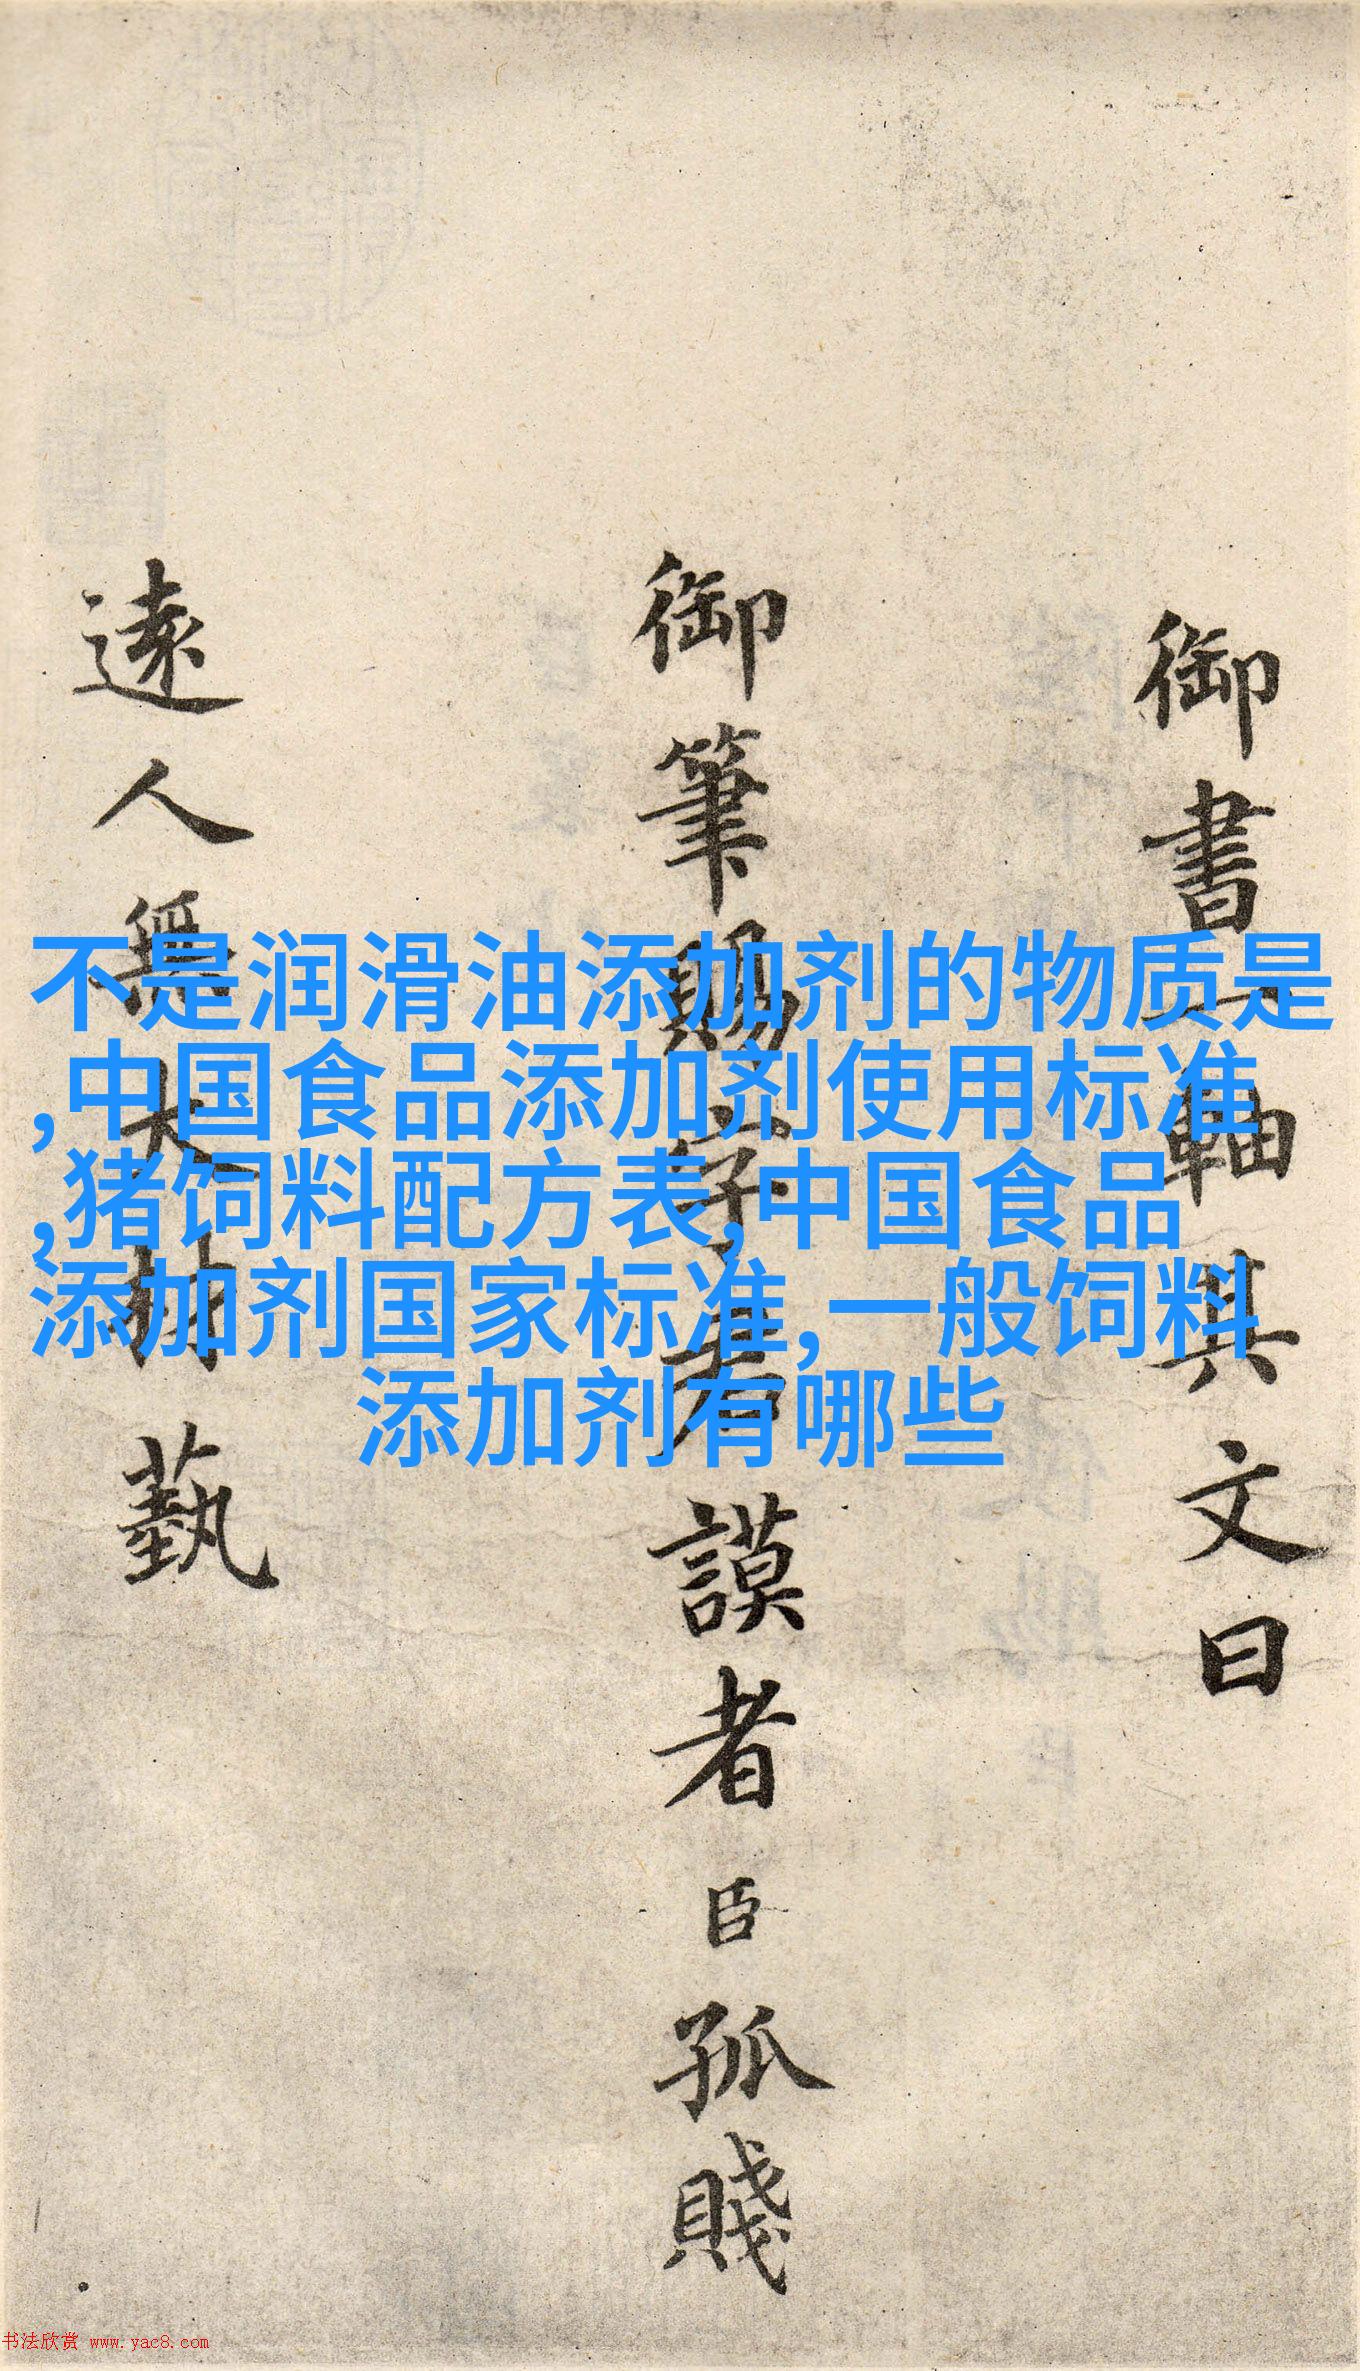 御書一軸其文曰
御筆賜字者謨者臣孤賤
遠人無大材藝
不是润滑油添加剂的物质是
,中国食品添加剂使用标准
,猪饲料配方表,中国食品
添加剂国家标准,一般饲料
添加剂有哪些
书法欣赏 www.yac8.com